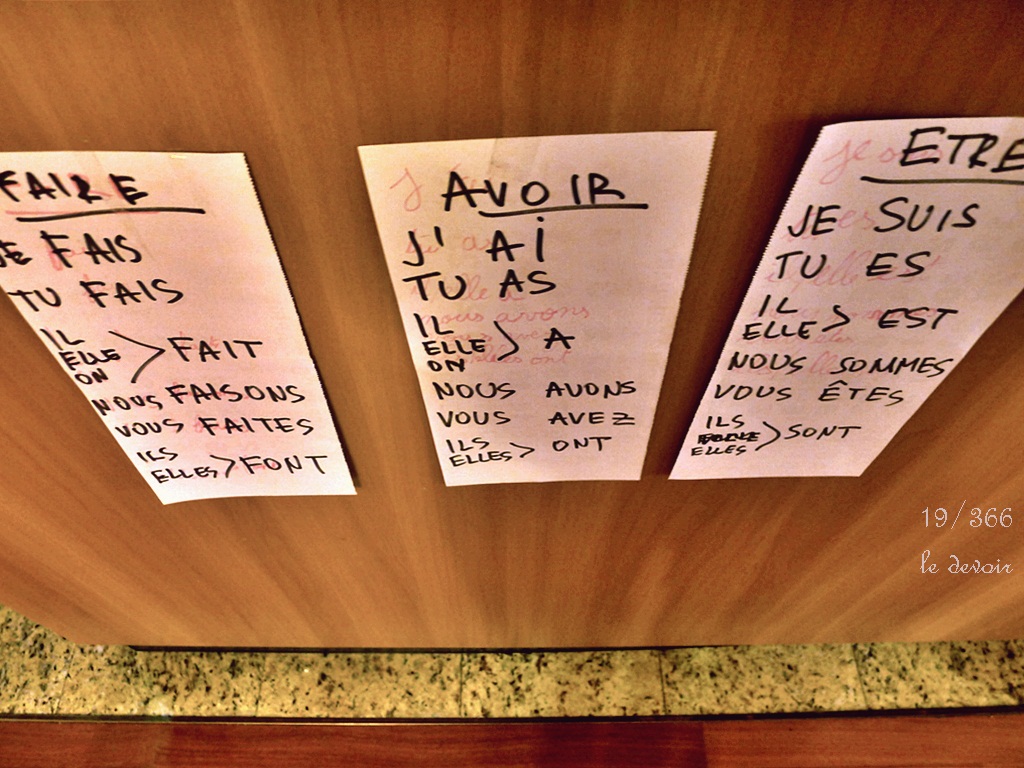 FAIRE
JE FAIS
TU FAIS
IL
ELLE > FAIT
ON
NOUS FAISONS
VOUS FAITES
ILS
ELLES > FONT
AVOIR
J'AI
TU AS
IL
ELLE > A
ON
NOUS AVONS
VOUS AVEZ
ILS
ELLES > ONT
ETRE
JE SUIS
TU ES
IL
ELLE > EST
NOUS SOMMES
VOUS ÊTES
ILS
ELLES > SONT
19/366
le devoir